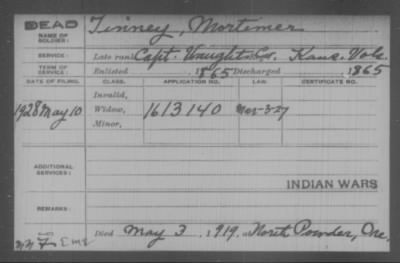 DEAD
NAME OF SOLDIER:
Tinney, Mortimer
SERVICE:
Late rank Capt. Vaughts Co. Kans. Vols.
TERM OF SERVICE:
Enlisted , 1865 Discharged , 1865
DATE OF FILING. CLASS. APPLICATION NO. LAW. CERTIFICATE NO.
Invalid,
1928 May 10 Widow, 1613140 Mar-3-27
Minor,
ADDITIONAL SERVICES:
INDIAN WARS
REMARKS:
Died May 3, 1919, at North Powder, Ore.